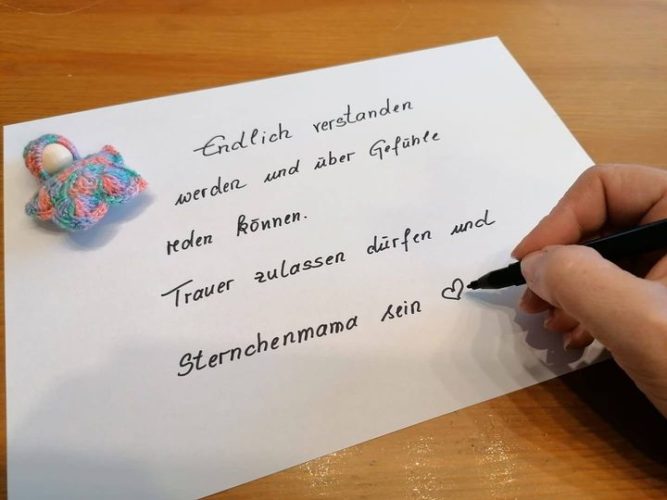 Endlich verstanden
werden und über Gefühle
reden können.
Trauer zulassen dürfen und
Sternchenmama sein ♡